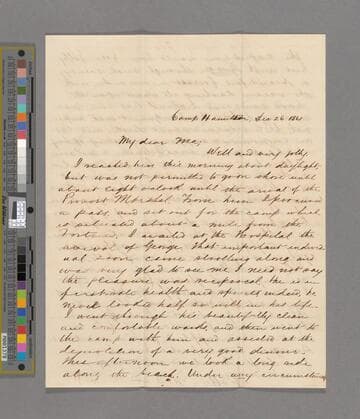 Camp Hamilton, Dec 26 1861
My dear Ma,
Well and very jolly
I reached here this morning about daylight,
but was not permitted to go on shore until
about eight o'clock until the arrival of the
Provost Marshal. From him I procured
a pass, and set out for the camp which
is situated about a mile from the
Fortress. I awaited at the Hospital the
arrival of George. That important individ
ual soon came strolling along and
was very glad to see me. I need not say
the pleasure was reciprocal. He is in
health and spirits indeed, he
never looked half so well in his life.
I went through his beautifully clean
and comfortable wards, and then went to
the camp with him and assisted at the
of a very good dinner.
This afternoon we took a long ride
along the beach. Under any circumstances